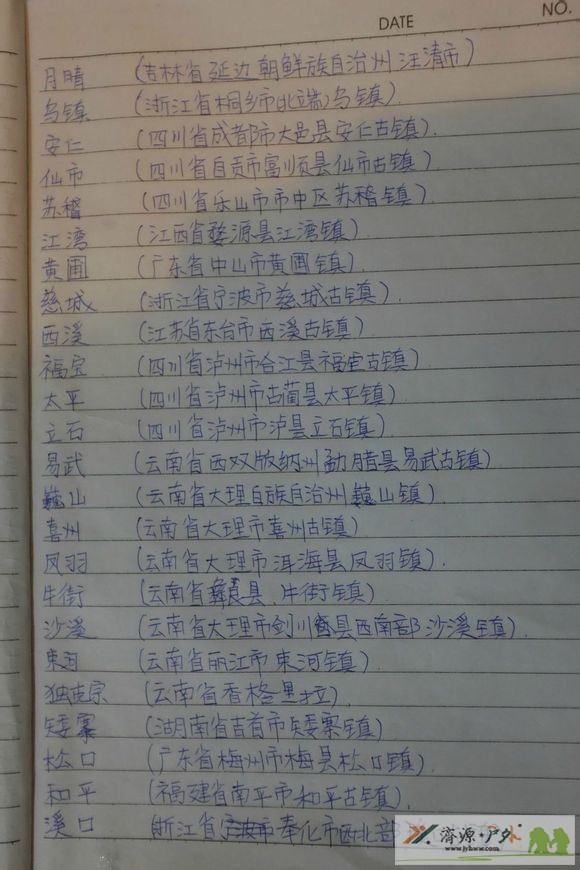 DATE
NO.
月晴 (吉林省延边朝鲜族自治州汪清市)
乌镇 (浙江省桐乡市(北端)乌镇).
安仁 (四川省成都市大邑县安仁古镇).
仙市 (四川省自贡市富顺县仙市古镇).
苏稽 (四川省乐山市市中区苏稽镇).
江湾 (江西省婺源县江湾镇).
黄圃 (广东省中山市黄圃镇).
慈城 (浙江省宁波市慈城古镇).
西溪 (江苏省东台市西溪古镇)
福宝 (四川省泸州市合江县福宝古镇)
太平 (四川省泸州市古蔺县太平镇)
立石 (四川省泸州市泸县立石镇)
易武 (云南省西双版纳州勐腊县易武古镇)
巍山 (云南省大理白族自治州巍山镇)
喜州 (云南省大理市喜州古镇)
凤羽 (云南省大理市洱海县凤羽镇).
牛街 (云南省彝良县、牛街镇)
沙溪 (云南省大理市剑川县西南部沙溪镇).
束河 (云南省丽江市束河镇)
独克宗 (云南省香格里拉)
矮寨 (湖南省吉首市矮寨镇)
松口 (广东省梅州市梅县松口镇)
和平 (福建省南平市和平古镇)
溪口 浙江省宁波市奉化市西北
济源·户外
www.jyhww.com